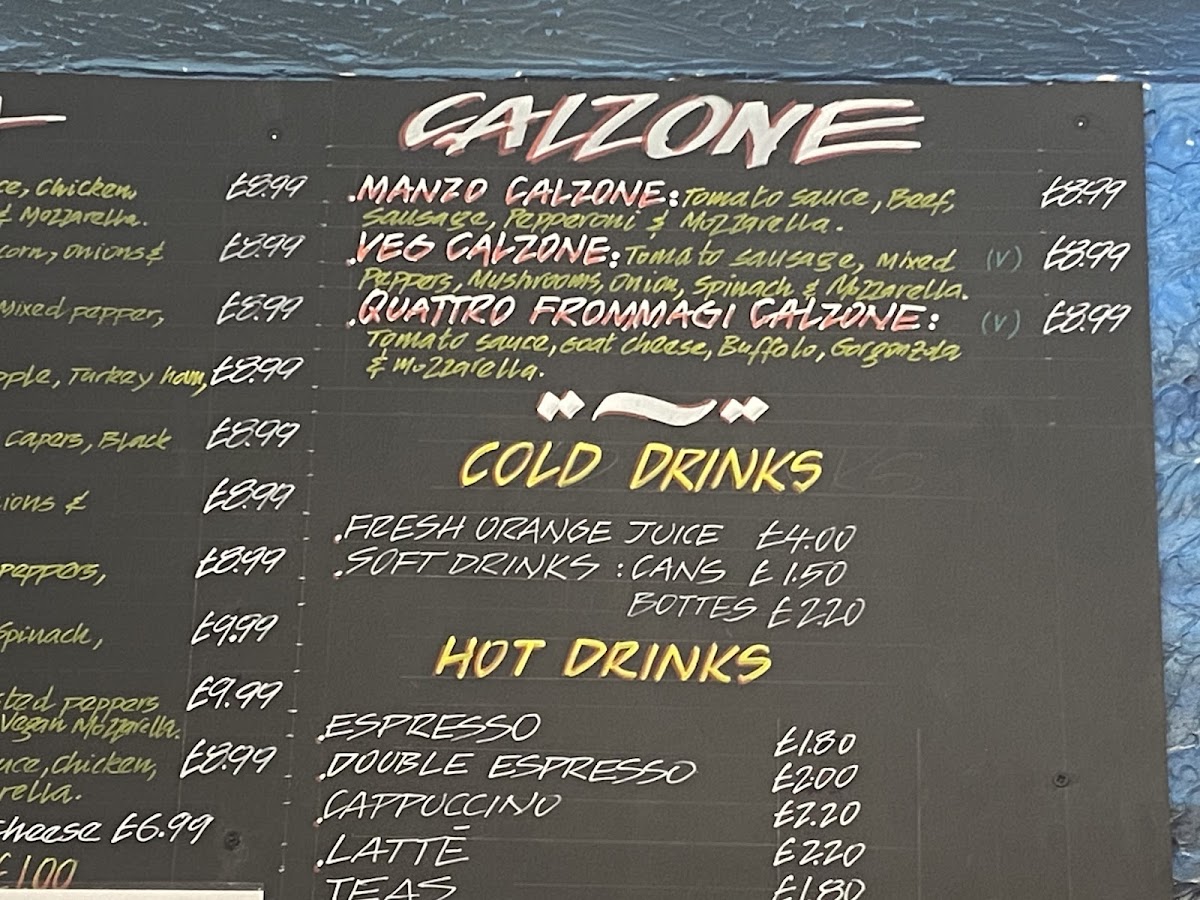 ce, chicken, £8.99
& Mozzarella.
corn, onions & £8.99
Mixed pepper, £8.99
pple, Turkey ham, £8.99
Capers, Black £8.99
ions & £8.99
Peppers, £8.99
Spinach, £9.99
sted peppers £9.99
Vegan Mozzarella.
uce, chicken, £8.99
rella.
cheese £6.99
£1.00
CALZONE
.MANZO CALZONE: Tomato sauce, Beef, £8.99
Sausage, Pepperoni & Mozzarella.
.VEG CALZONE: Tomato sausage, Mixed (V) £8.99
Peppers, Mushrooms, Onion, Spinach & Mozzarella.
.QUATTRO FROMMAGI CALZONE: (V) £8.99
Tomato sauce, Goat cheese, Buffolo, Gorgonzola
& Mozzarella.
COLD DRINKS
.FRESH ORANGE JUICE £4.00
.SOFT DRINKS : CANS £1.50
BOTTES £2.20
HOT DRINKS
.ESPRESSO £1.80
.DOUBLE ESPRESSO £2.00
.CAPPUCCINO £2.20
.LATTE £2.20
TEAS £1.80